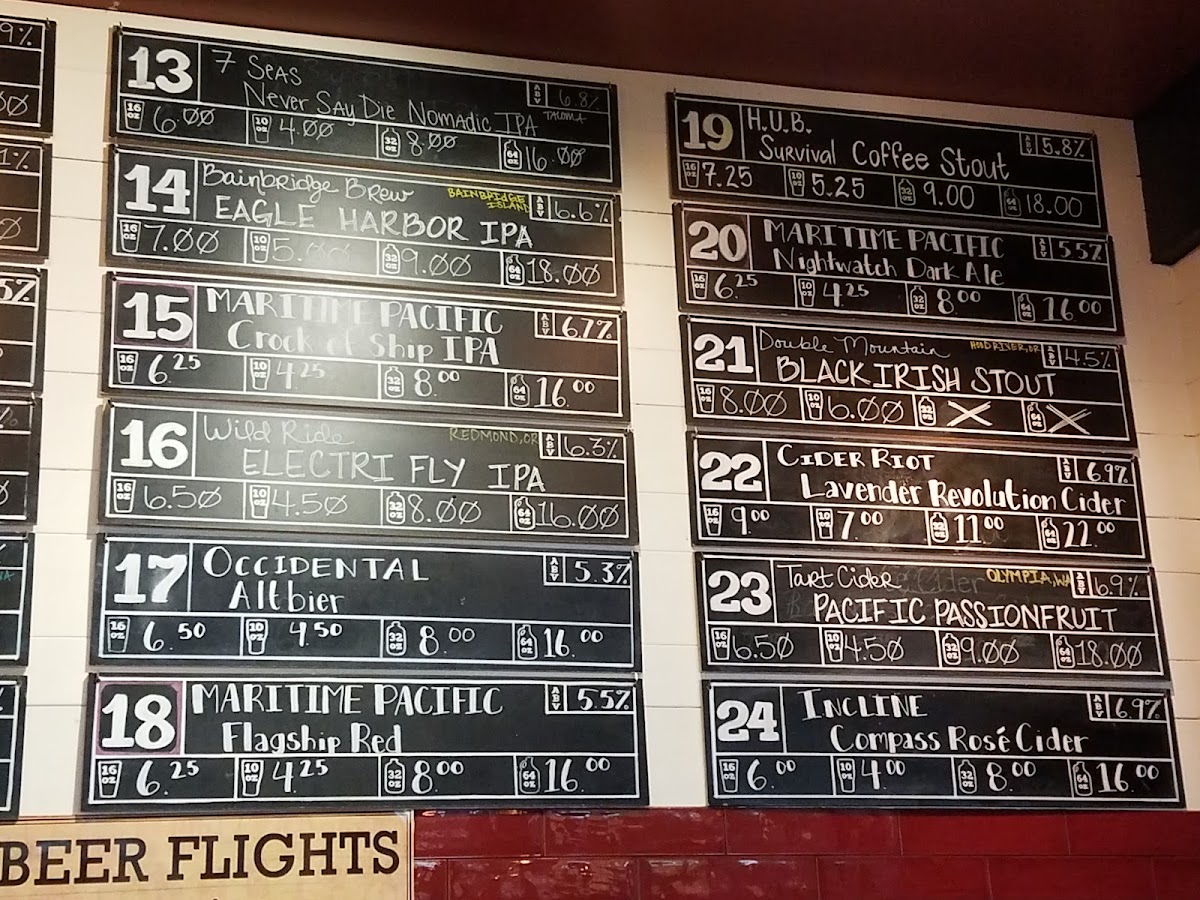 9%
1%
5%
13
7 Seas
Never Say Die Nomadic IPA TACOMA
ABV 6.8%
16 oz 6.00 10 oz 4.00 32 oz 8.00 64 oz 16.00
14
Bainbridge Brew BAINBRIDGE ISLAND
EAGLE HARBOR IPA
ABV 6.6%
16 oz 7.00 10 oz 5.00 32 oz 9.00 64 oz 18.00
15
MARITIME PACIFIC
Crock of Ship IPA
ABV 6.7%
16 oz 6.25 10 oz 4.25 32 oz 8.00 64 oz 16.00
16
Wild Ride REDMOND, OR
ELECTRI FLY IPA
ABV 6.3%
16 oz 6.50 10 oz 4.50 32 oz 8.00 64 oz 16.00
17
OCCIDENTAL
Altbier
ABV 5.3%
16 oz 6.50 10 oz 4.50 32 oz 8.00 64 oz 16.00
18
MARITIME PACIFIC
Flagship Red
ABV 5.5%
16 oz 6.25 10 oz 4.25 32 oz 8.00 64 oz 16.00
19
H.U.B.
Survival Coffee Stout
ABV 5.8%
16 oz 7.25 10 oz 5.25 32 oz 9.00 64 oz 18.00
20
MARITIME PACIFIC
Nightwatch Dark Ale
ABV 5.5%
16 oz 6.25 10 oz 4.25 32 oz 8.00 64 oz 16.00
21
Double Mountain HOOD RIVER, OR
BLACK IRISH STOUT
ABV 4.5%
16 oz 8.00 10 oz 6.00 32 oz X 64 oz X
22
CIDER RIOT
Lavender Revolution Cider
ABV 6.9%
16 oz 9.00 10 oz 7.00 32 oz 11.00 64 oz 22.00
23
Tart Cider OLYMPIA, WA
PACIFIC PASSIONFRUIT
ABV 6.9%
16 oz 6.50 10 oz 4.50 32 oz 9.00 64 oz 18.00
24
INCLINE
Compass Rosé Cider
ABV 6.9%
16 oz 6.00 10 oz 4.00 32 oz 8.00 64 oz 16.00
BEER FLIGHTS